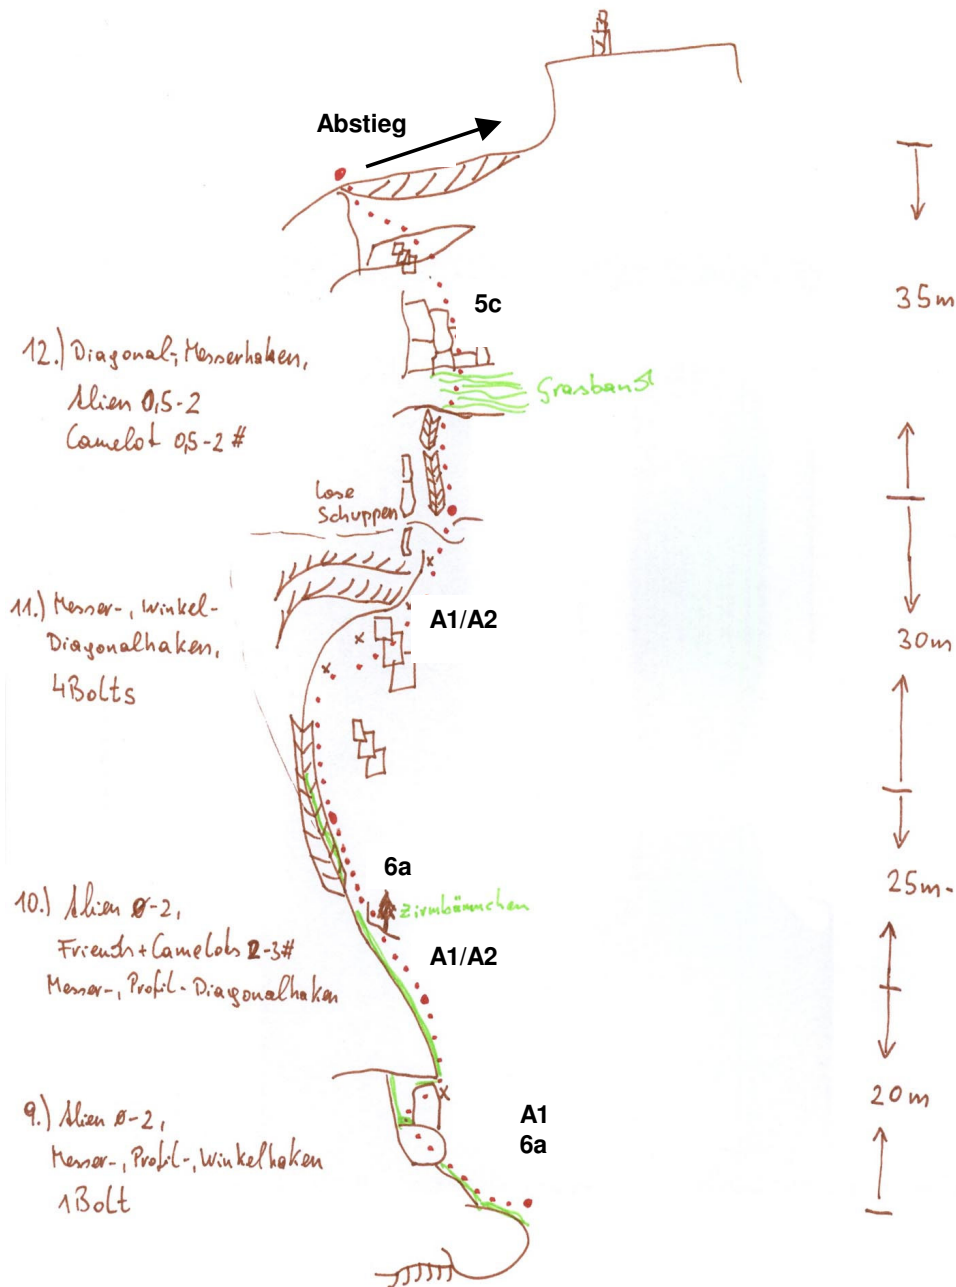 Abstieg
35m
5c
12.) Diagonal-, Messerhaken,
Alien 0,5-2
Camelot 0,5-2 #
Grasband
Lose
Schuppen
11.) Messer-, Winkel-
Diagonalhaken,
4Bolts
A1/A2
30m
6a
25m.
Zirmbäumchen
10.) Alien 0-2,
Friends+Camelots 2-3#
Messer-, Profil-Diagonalhaken
A1/A2
20m
9.) Alien 0-2,
Messer-, Profil-, Winkelhaken
1Bolt
A1
6a